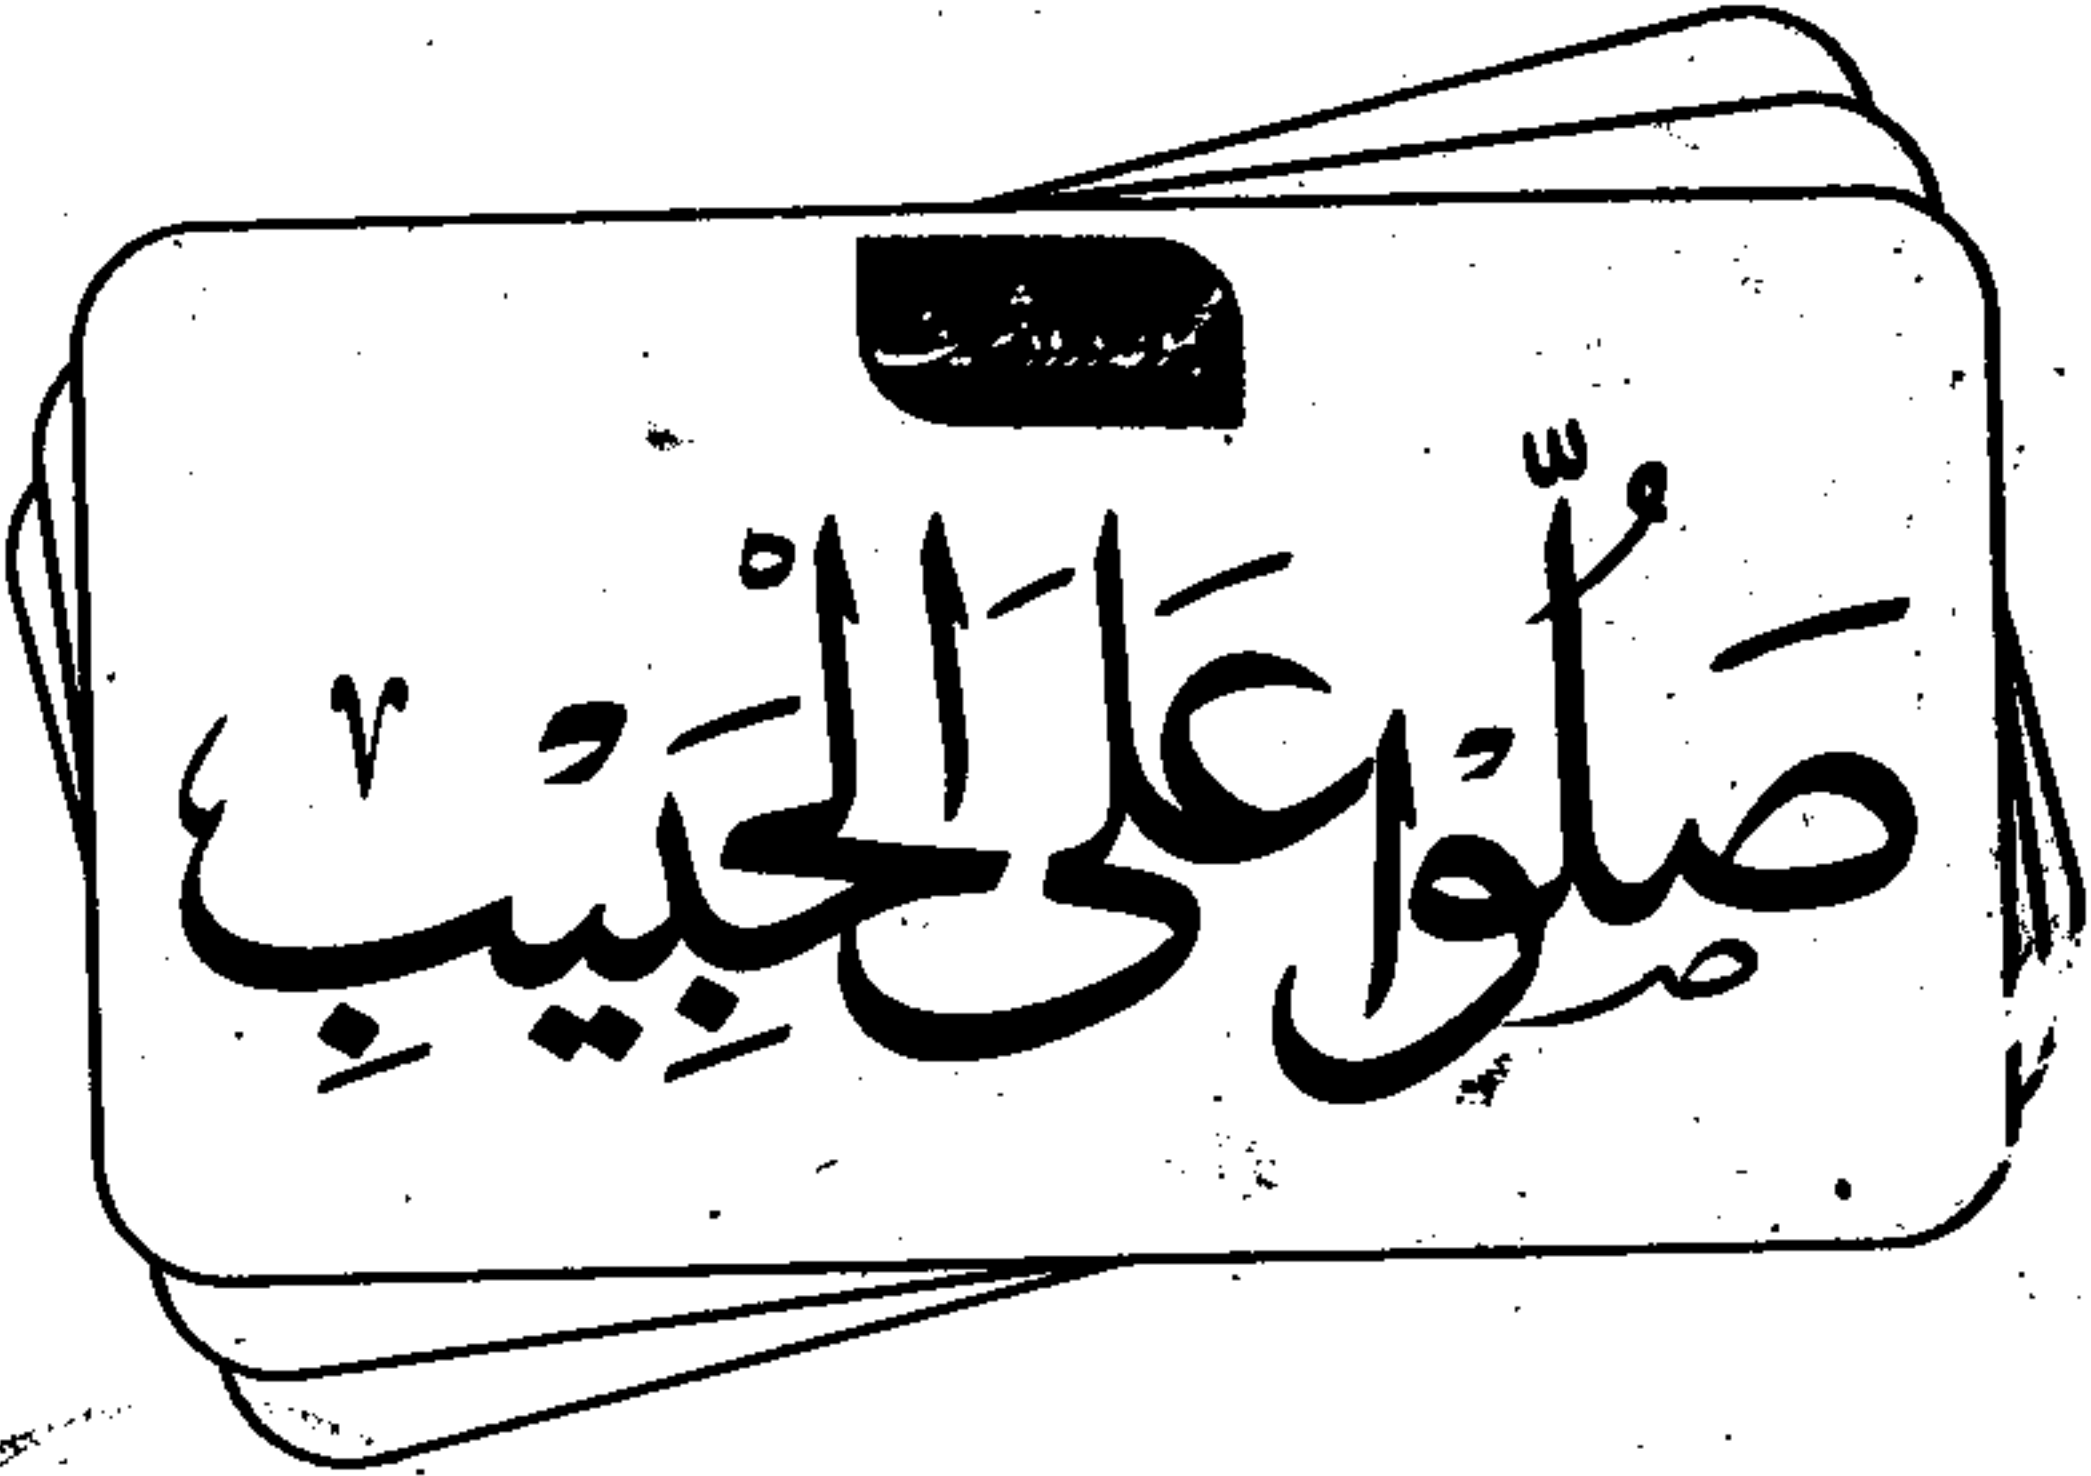 صَلُّوْا عَلَى الْحَبِيْبِ